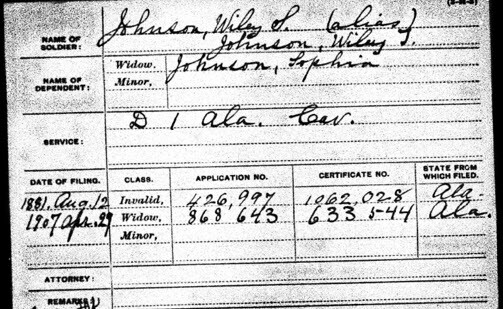 (3-14
NAME OF SOLDIER: Johnson, Wiley S. (alias)
Johnson, Wiley T.
NAME OF DEPENDENT: Widow, Johnson, Sophia
Minor,
SERVICE: D 1 Ala. Cav.
DATE OF FILING. CLASS. APPLICATION NO. CERTIFICATE NO. STATE FROM WHICH FILED.
1881. Aug. 12 Invalid, 426,997 1062,028 Ala.
1907 Apr. 29 Widow, 868 643 633 544 Ala.
Minor,
ATTORNEY:
REMARKS: